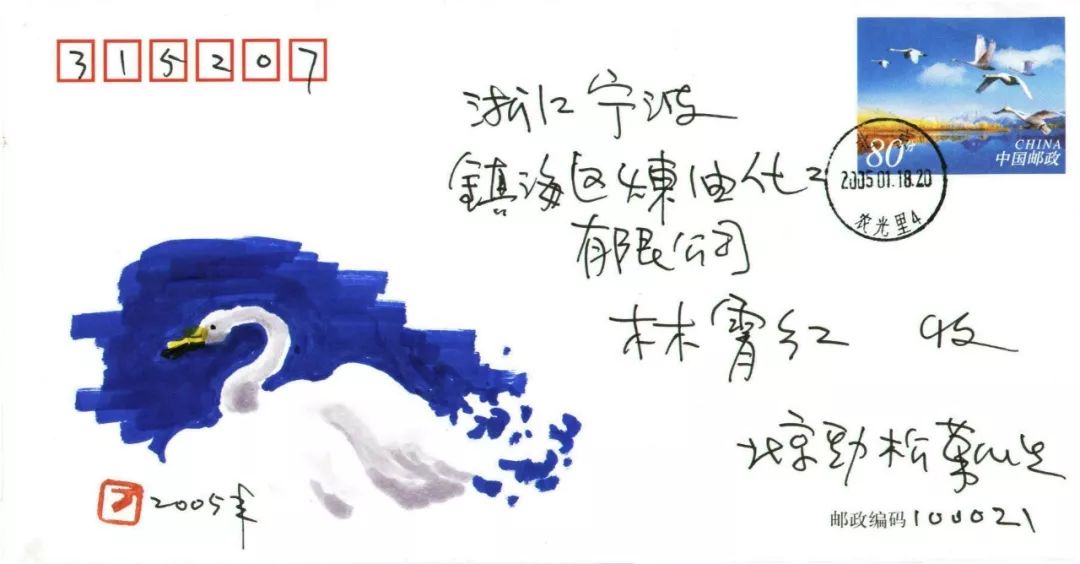 315207
CHINA
中国邮政
80分
2005.01.18.20
光里4
浙江宁波
鎮海区煉油化工
有限公司
林霄红 收
北京劲松
2005年
邮政编码100021